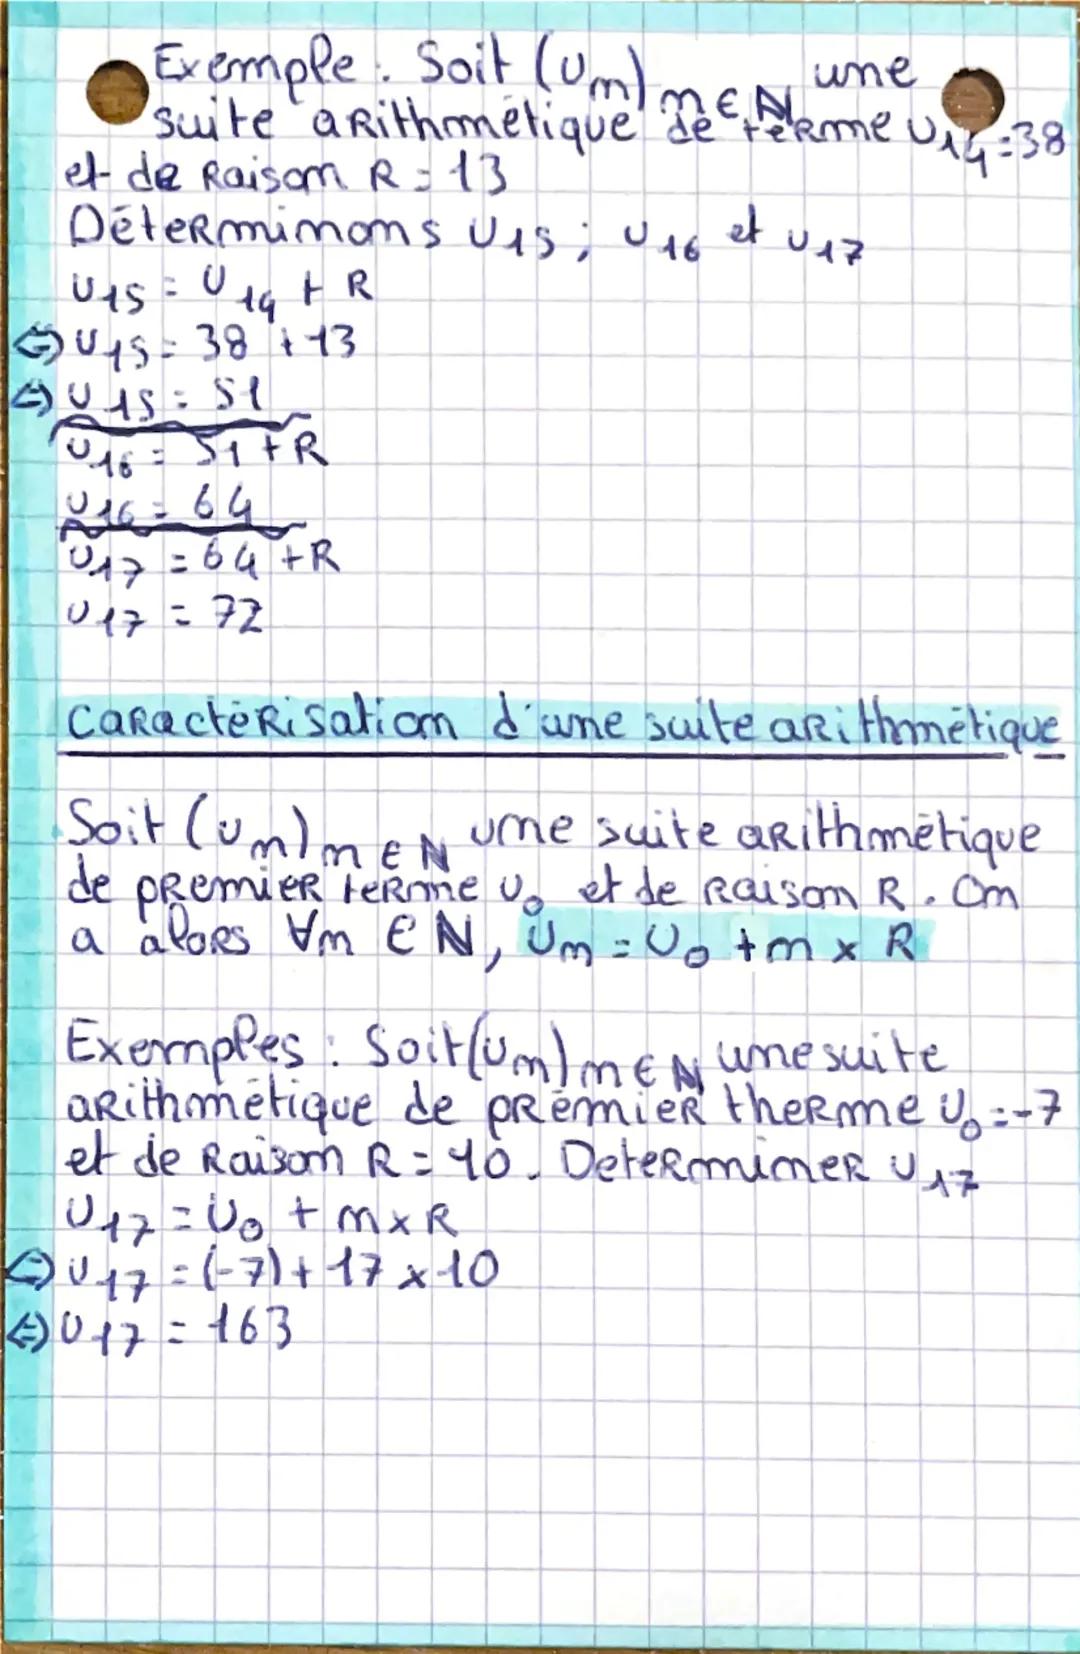 Exemple : Soit (Un) n∈ℕ une
suite arithmétique de terme U14=38
et de Raison R = 13
Déterminons U15 ; U16 et U17
U15 = U14 + R
⇔ U15 = 38 + 13
⇔ U15 = 51
U16 = 51 + R
U16 = 64
U17 = 64 + R
U17 = 72
Caractérisation d'une suite arithmétique
Soit (Un) n∈ℕ une suite arithmétique
de premier terme U0 et de raison R. On
a alors ∀n ∈ ℕ, Un = U0 + n x R
Exemples : Soit (Un) n∈ℕ une suite
arithmétique de prémier therme U0=-7
et de Raison R = 10. Determiner U17
U17 = U0 + n x R
⇔ U17 = (-7) + 17 x 10
⇔ U17 = 163